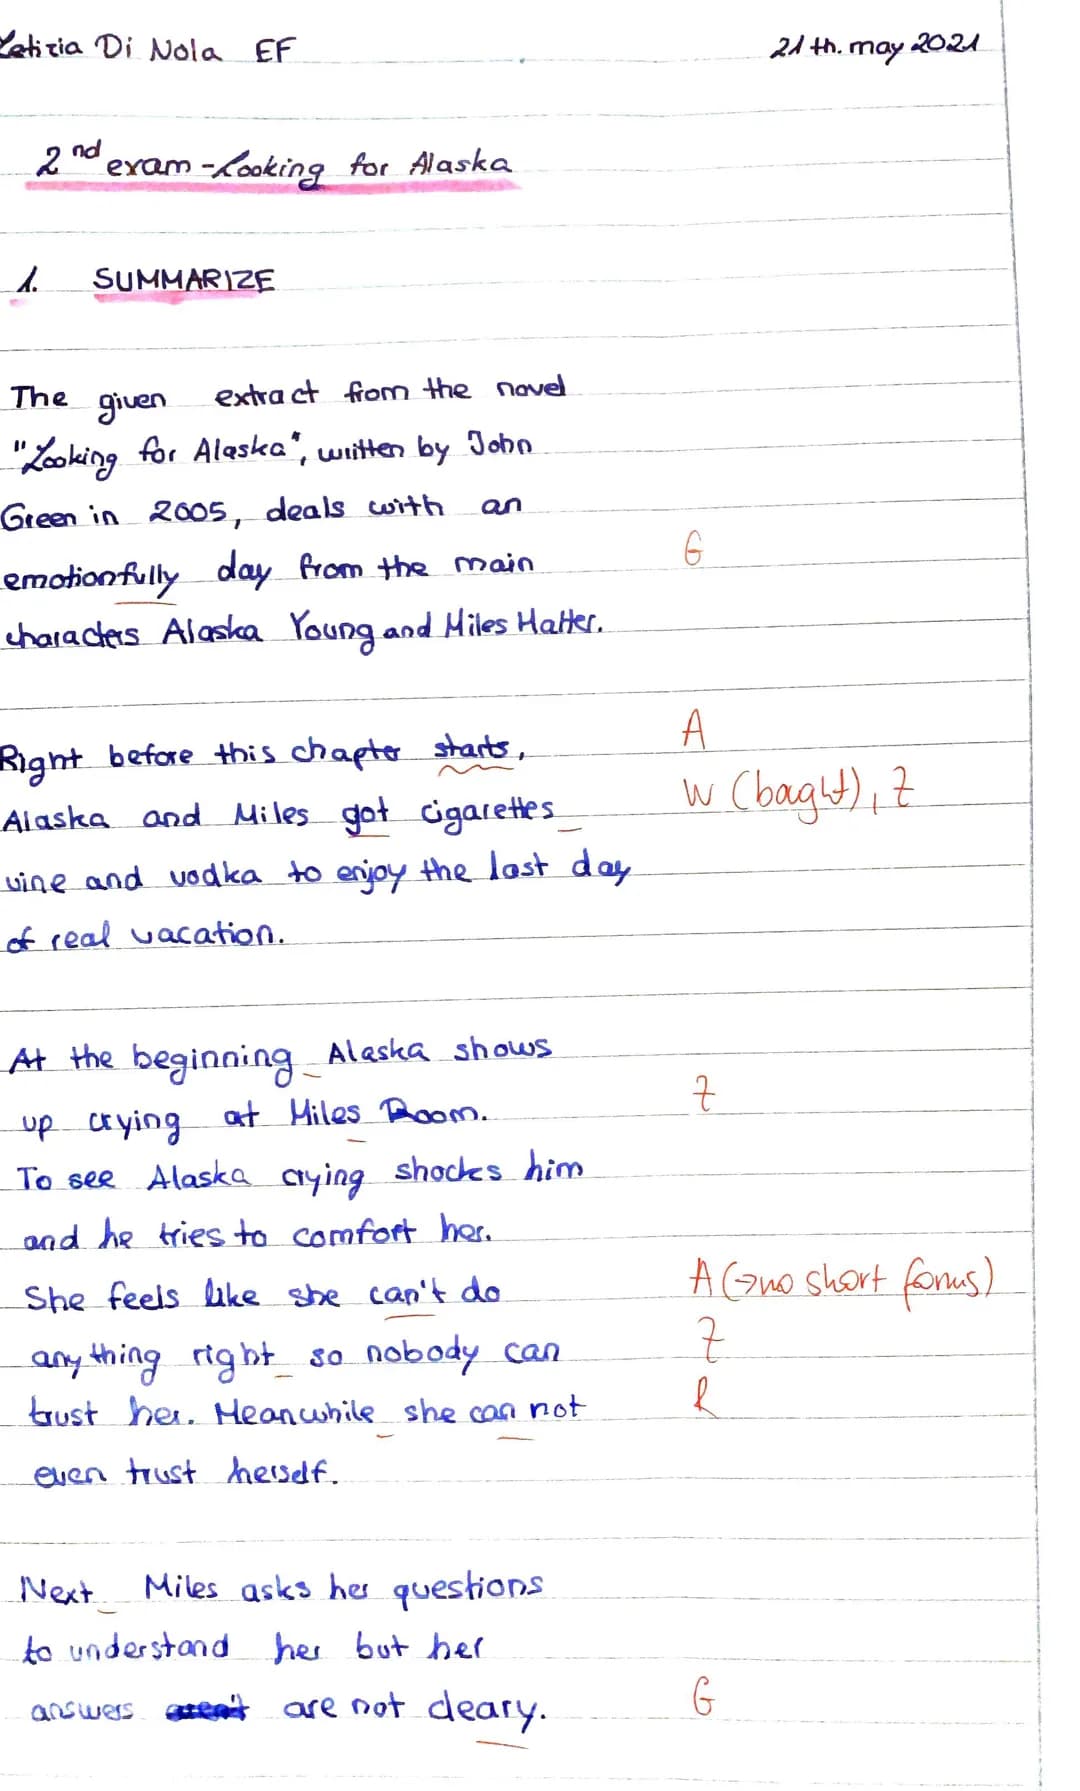 Letizia Di Nola EF 21th. may 2021
2nd exam - Looking for Alaska
1. SUMMARIZE
The given extract from the novel
"Looking for Alaska", written by John
Green in 2005, deals with an
emotionfully day from the main G
characters Alaska Young and Miles Halter.
Right before this chapter starts, A
Alaska and Miles got cigarettes W (baght), Z
vine and vodka to enjoy the last day
of real vacation.
At the beginning Alaska shows
up crying at Miles Room. Z
To see Alaska crying shocks him
and he tries to comfort her.
She feels like she can't do A (→no short forms)
anything right so nobody can Z
trust her. Meanwhile she can not R
even trust herself.
Next Miles asks her questions
to understand her but her
answers aren't are not cleary. G